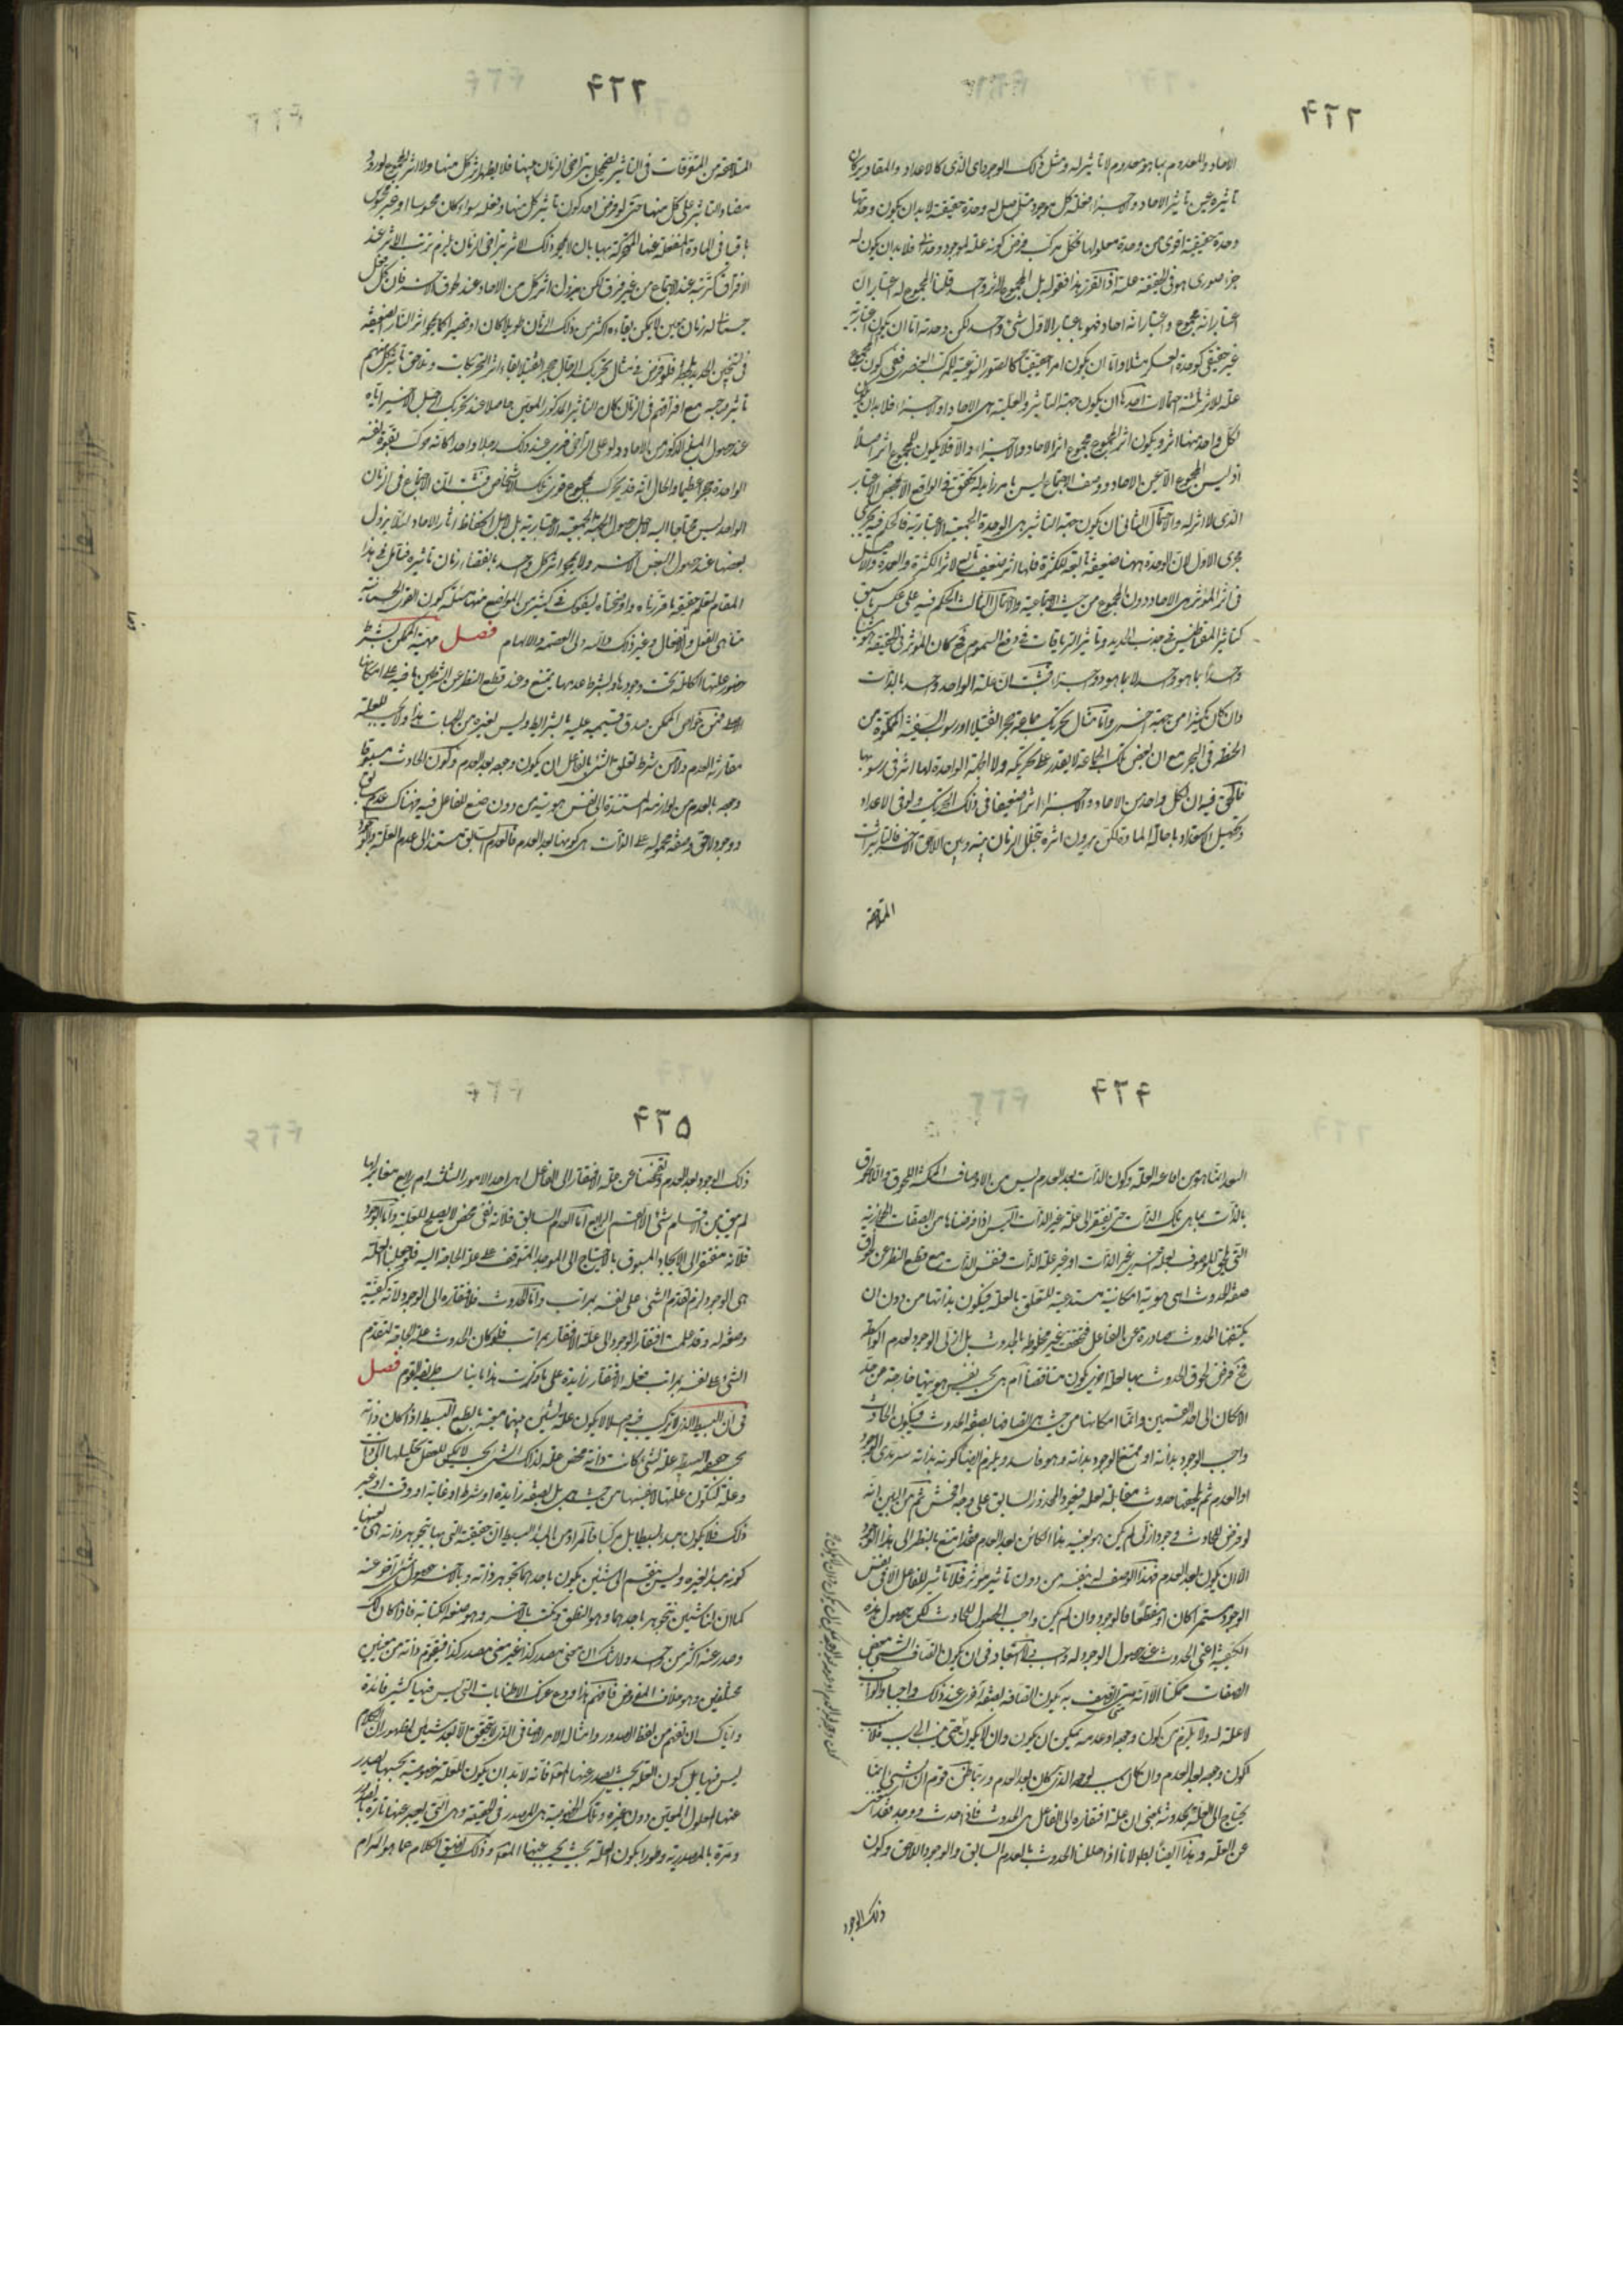 ۴۲۲
الاحاد والمعدوم بما هو معدوم لا تأثير له ومثل ذلك الوجود اى الذى كالاعداد والمقادير كان
تأثيره عين تأثير الاحاد والاجزاء فعلة كل موجود متأصل له وحدة حقيقية لا بد ان يكون وحدتها
وحدة حقيقية اقوى من وحدة معلولها فكل مركب فرض كونه علة لموجود وحدانى فلا بد ان يكون له
جزء صورى هو فى الحقيقة علة اذا تقرر هذا فقوله بل المجموع لاثر واحد قلنا المجموع له اعتباران
اعتبار انه مجموع واعتبار انه احاد فهو باعتبار الاول شىء واحد لكن وحدته اما ان يكون اعتبارية
غير حقيقى كوحدة العسكر مثلا واما ان يكون امرا حقيقيا كالصور النوعية للمركب العنصرى ففى كون المجموع
علة لاثر ثلثة احتمالات احدها ان يكون جهة التأثير والعلية هى الاحاد او الاجزاء فلا بد ان يكون
لكل واحد منها اثر ويكون اثر المجموع مجموع اثر الاحاد والاجزاء والا فلا يكون للمجموع اثر اصلا
اذ ليس المجموع الا عين الاحاد ووصف الاجتماع ليس بامر زايد له تحقق فى الواقع الا بمحض الاعتبار
الذى لا اثر له والاحتمال الثانى ان يكون جهة التأثير هى الوحدة الجمعية الاعتبارية فالحكم فيه يجرى
مجرى الاول لان الوحدة ههنا ضعيفة تابعة للكثرة فلها اثر ضعيف تابع لاثر الكثرة والعمدة والاصل
فى اثر المؤثر هى الاحاد دون المجموع من حيث الاجتماعية والاحتمال الثالث الحكم فيه على عكس ما سبق
كتأثير المقناطيس فى جذب الحديد وتأثير الترياقات فى دفع السموم فح كان المؤثر فى الحقيقة هو شيئا
واحدا بما هو واحد لا بما هو ذو اجزاء فثبت ان علة الواحد واحد بالذات
وان كان كثيرا من جهة اخرى واما مثال تحريك جماعة حجرا ثقيلا او رسوب السفينة المملوة من
الحنطة فى البحر مع ان بعض تلك الجماعة لا يقدر على تحريكه ولا الحبة الواحدة لها اثر فى رسوبها
فالحق فيه ان لكل واحد من الاحاد والاجزاء اثرا ضعيفا فى ذلك التحريك ولو فى الاعداد
وتحصيل الاستعداد باحالة المادة لكن يزول اثره بتخلل الزمان بينه وبين اللاحق الاخر فالتأثيرات
المتلاحقة
۴۲۳
المتلاحقة من المتفرقات فى التأثير يضمحل بتراخى الزمان بينها فلا يظهر اثر كل منها ولا اثر المجموع لورود
مضاد التأثير على كل منها حتى لو فرض احد كون تأثير كل منها وفعله سواء كان محسوسا او غير محسوس
باقيا فى المادة المنفعلة عنها المتحركة بها بان لا يمحو ذلك الاثر بتراخى الزمان لزم ترتب الاثر عند
الافتراق كترتبه عند الاجتماع من غير فرق لكن يزول اثر كل من الاحاد عند لحوق الاخر فان لكل فعل
جسمانى له زمان معين لا يمكن بقاءه اكثر من ذلك الزمان طويلا كان او قصيرا كما يمحو اثر النار الضعيفة
فى تسخين الحديد بالبطؤ فلو فرض فى مثال تحريك الاثقال حجر الثقيل بقاء اثر التحريكات وتلاحق تأثير كل منهم
تأثير صاحبه مع افتراقهم فى الزمان كان التأثير المذكور المعين حاصلا عند تحريك الرجل الاخير اياه
عند حصول المبلغ المذكور من الاحاد ولو على التراخى فنرى عند ذلك رجلا واحدا كانه حرك بقوة نفسه
الواحدة حجرا عظيما والحال انه قد تحرك بمجموع قوى تلك الاشخاص فثبت ان الاجتماع فى الزمان
الواحد ليس محتاجا اليه لاجل حصول الهيئة الجمعية الاعتبارية بل لاجل انحفاظ اثار الاحاد لئلا يزول
بعضها عند حصول البعض الاخر ولا يمحو اثر كل واحد بانقضاء زمان تأثيره فتأمل فى هذا
المقام لتعلم حقيقة ما قررناه واوضحناه ينفعك فى كثير من المواضع منها مسئلة كون القوى الجسمانية
متناهى الفعل والانفعال وغير ذلك والله ولى العصمة والالهام فصل مهية الممكن بشرط
حضور علتها الكاملة يجب وجودها وبشرط عدمها يمتنع وعند قطع النظر عن الشرطين باقية على امكانها
الاصلى فمن خواص الممكن صدق قسيميه عليه بالشرايط وليس لغيره من الجهات هذا ولا يجب للعلة
مقارنة العدم ولا من شرط تعلق الشىء بالفاعل ان يكون وجوده بعد العدم وكون الحادث مسبوقا
وجوده بالعدم من لوازمه المستندة الى نفس هويته من دون صنع الفاعل فيه فهناك عدم سابق
ووجود لاحق وصفة محمولة على الذات هى كونها بعد العدم فالعدم السابق مستند الى عدم العلة والوجود
۴۲۴
البعد انما هو من افاعة العلة وكون الذات بعد العدم ليس من الاوصاف الممكنة اللحوق واللالحوق
بالذات بما هى تلك الذات حتى يفتقر الى علة غير الذات اليس اذا فرضناها من الصفات الجايزة
التى يلحق للموصوف بعلة اخرى غير الذات او غير علة الذات فنفس الذات مع قطع النظر عن لحوق
صفة الحدوث اهى هوية امكانية مستدعية للتعلق بالعلة فيكون بذاتها من دون ان
يكتنفها الحدوث صادرة عن الفاعل فتحققت غير مخلوطة بالحدوث بل ازلى الوجود لعدم الواسطة
فح فرض لحوق الحدوث بها لعلة اخرى يكون متناقضا ام هى بحسب نفس هويتها خارجة عن حد
الامكان الى احد القسمين وانما امكانها من حيث هى اتصافها بصفة الحدوث فيكون الحادث
واجب الوجود بذاته او ممتنع الوجود بذاته وهو فاسد ويلزم ايضا كونه بذاته سرمدى الوجود
او العدم ثم يلحقها حدوث مقابله لعلة فيعود المحذور السابق على وجه افحش ثم من البين انه
لو فرض للحادث وجود ازلى لم يكن هو بعينه هذا الكائن بعد العدم فهذا امتنع بالنظر الى هذا الوجود
الا ان يكون بعد العدم فهذا الوصف له بنفسه من دون تأثير مؤثر فلا تأثير للفاعل الا فى نفس
الوجود مستمرا كان او منقطعا فالوجود وان لم يكن واجب الحصول للحادث لكن حصول هذه
الكيفية اعنى الحدوث عند حصول الوجود له واجب ولا استبعاد فى ان يكون اتصاف الشىء ببعض
الصفات ممكنا الا انه متى اتصف به يكون اتصافه بصفة اخرى عند ذلك واجبا والواجب
لا علة له ولا يلزم من كون وجوده وعدمه يمكن ان يكون وان لا يكون حتى يفتقر الى سبب فلا سبب
لكون وجوده بعد العدم وان كان سبب لوجوده الذى كان بعد العدم وربما ظن قوم ان الشىء انما
يحتاج الى العلة لحدوثه بمعنى ان علة افتقاره الى الفاعل هى الحدوث فاذا حدث ووجد فقد استغنى
عن العلة وهذا ايضا باطل لانا اذا حللنا الحدوث بالعدم السابق والوجود اللاحق وكون
ذلك الوجود
۴۲۵
ذلك الوجود بعد العدم وتفحصنا عن علة الافتقار الى الفاعل اهى احد الامور الثلثة ام رابع مغاير لها
لم يبق من الاقسام شىء الا القسم الرابع اما العدم السابق فلانه نفى محض لا يصلح للعلية واما الوجود
فلانه مفتقر الى الايجاد المسبوق بالاحتياج الى الموجد المتوقف على علة الحاجة اليه فلو جعلنا العلة
هى الوجود لزم تقدم الشىء على نفسه بمراتب واما الحدوث فلافتقاره الى الوجود لانه كيفية
وصفة له وقد علمت افتقار الوجود الى علة الافتقار بمراتب فلو كان الحدوث علة الحاجة لتقدم
الشىء على نفسه بمراتب فعلة الافتقار زايدة على ما ذكرت هذا ما يناسب طريقة القوم فصل
فى ان البسيط الذى لا تركيب فيه اصلا لا يكون علة لشيئين بينهما معية بالطبع البسيط اذا كان ذاته
بحسب حقيقته البسيطة علة لشىء كانت ذاته محض علة لذلك الشىء بحيث لا يمكن للعقل تحليلها الى ذات
وعلة لتكون علتها لا لنفسها من حيث هى بل بصفة زايدة او شرط او غاية او وقت او غير
ذلك فلا يكون مبدء بسيطا بل مركبا فالمراد من المبدء البسيط ان حقيقته التى بها يتجوهر ذاته هى بعينها
كونه مبدء لغيره وليس ينقسم الى شيئين يكون باحدهما تجوهر ذاته وبالاخر حصول شىء اخر عنه
كما ان لنا شيئين نتجوهر باحدهما وهو النطق ونكتب بالاخر وهو صفة الكتابة فاذا كان كذلك
وصدر عنه اكثر من واحد ولا شك ان معنى مصدر كذا غير معنى مصدر كذا فيقوم ذاته من معنيين
مختلفين وهو خلاف المفروض فافهم هذا ودع عنك الاطنابات التى ليس فيها كثير فائدة
واياك ان تفهم من لفظ الصدور وامثاله الامر الاضافى الذى لا يتحقق الا بعد شيئين لظهور ان الكلام
ليس فيها بل كون العلة بحيث يصدر عنها المعلول فانه لا بد ان يكون للعلة خصوصية بحسبها يصدر
عنها المعلول المعين دون غيره وتلك الخصوصية هى المصدر فى الحقيقة وهى التى يعبر عنها تارة بالصدور
ومرة بالمصدرية وطورا بكون العلة بحيث يجب عنها المعلول وذلك لضيق الكلام عما هو المرام